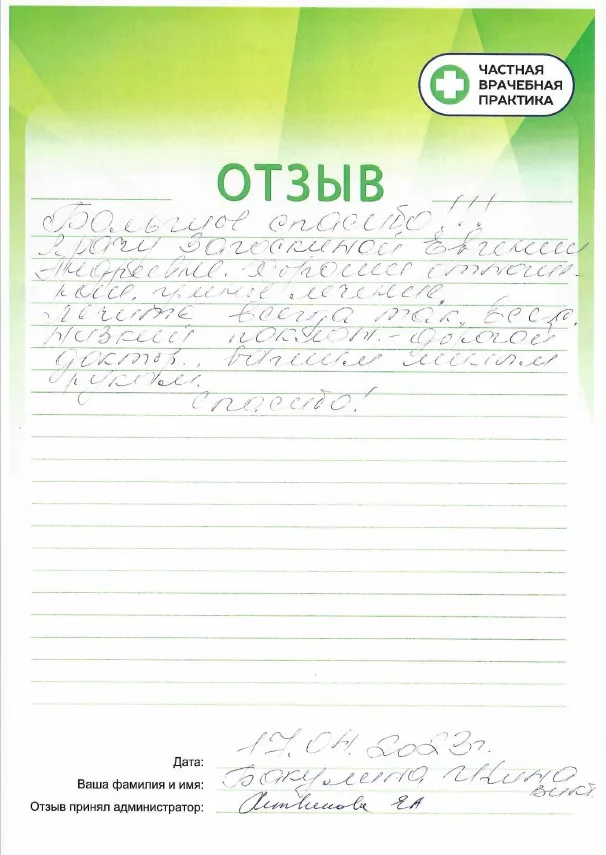 ЧАСТНАЯ
ВРАЧЕБНАЯ
ПРАКТИКА
ОТЗЫВ
Большое спасибо!!!
Врачу Загоскиной Евгении
Андреевне. Хорошее
умное лечение.
Лечите всегда так, всех.
Низкий поклон - дорогой
доктор, вашим милым
рукам.
Спасибо!
Дата: 17.04.2023г.
Ваша фамилия и имя: Бакулина Викт.
Отзыв принял администратор: ЕА